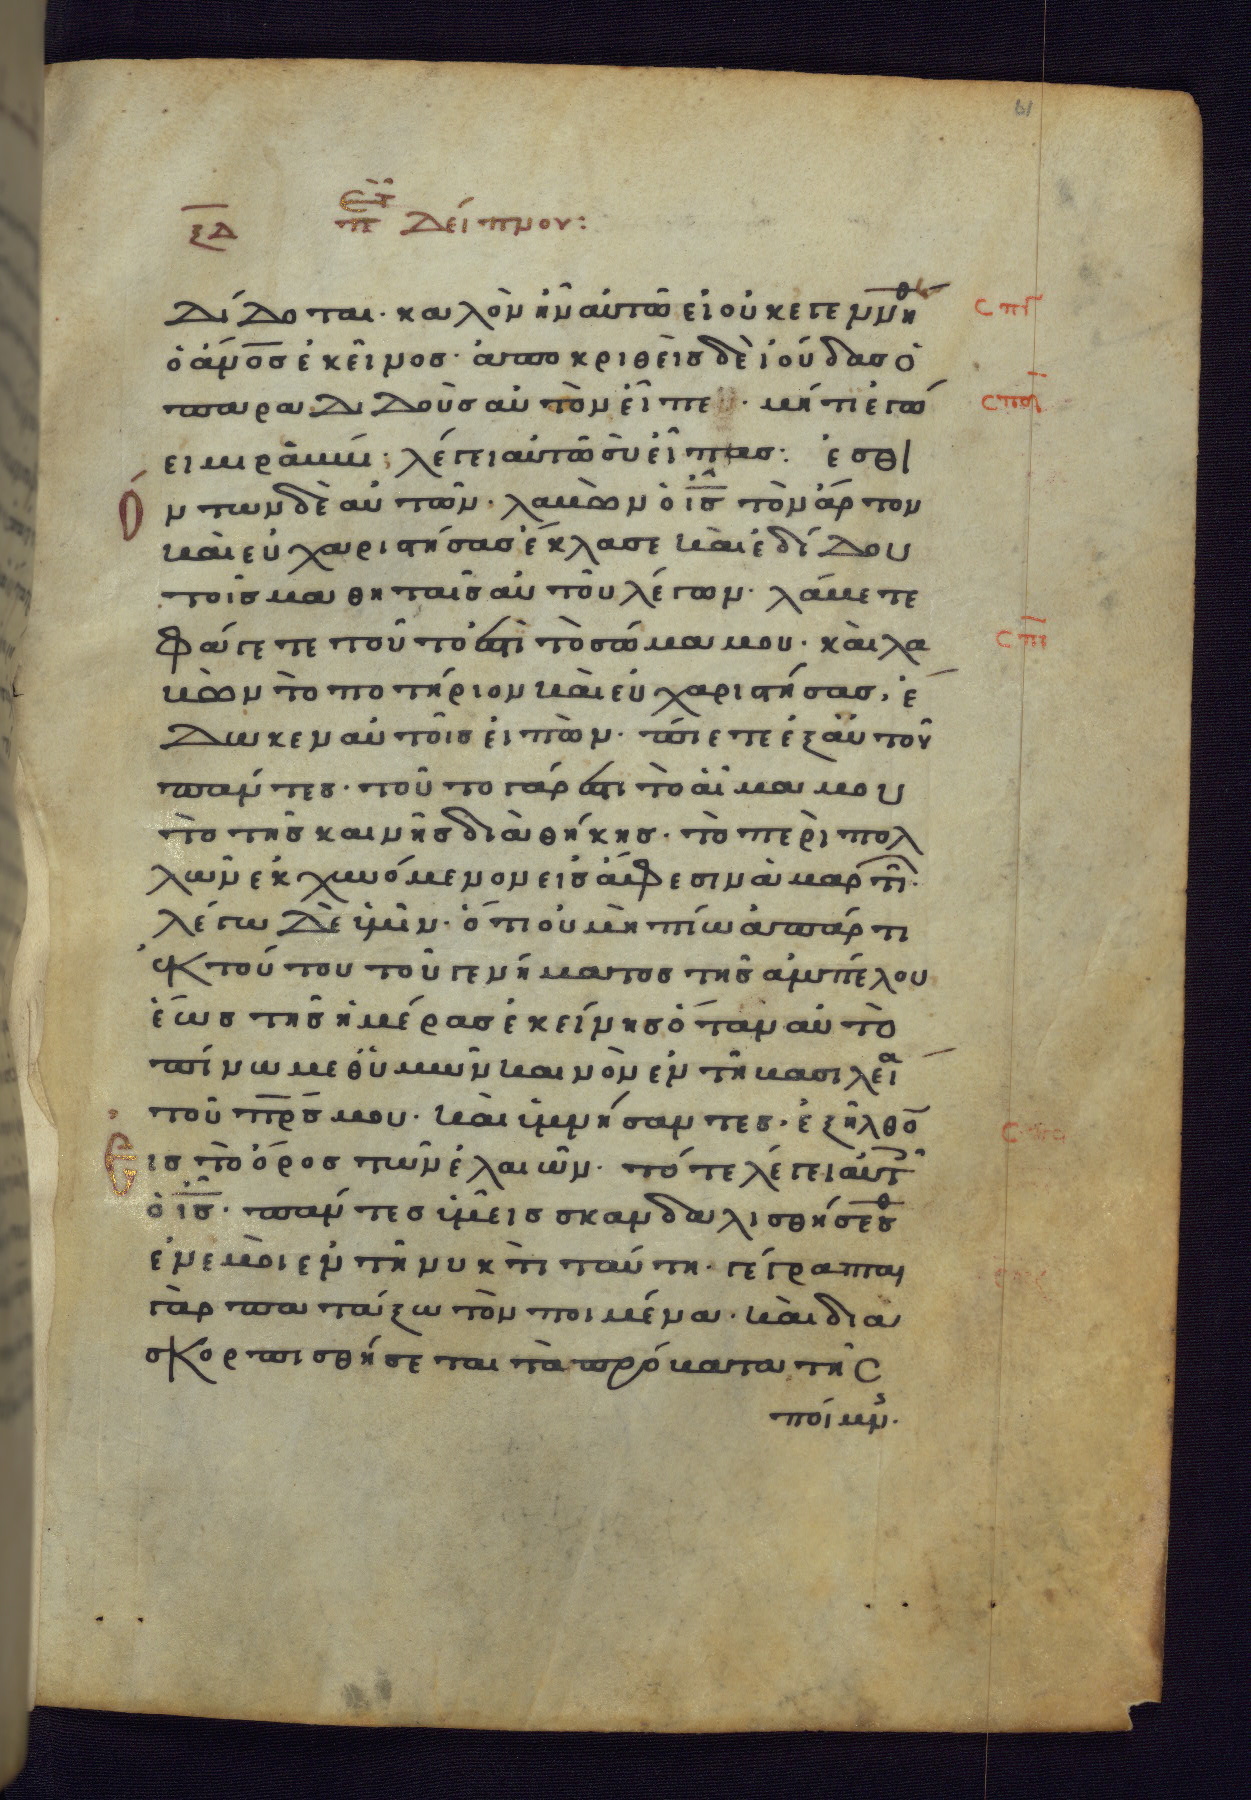 61
ξδ π Δείπνου:
δίδοται· καλὸν ἦν αὐτῶ εἰ οὐκ ἐγεννήθ
ὁ ἄν̅ο̅σ̅ ἐκεῖνος· ἀποκριθεὶς δὲ ἰούδας ὁ
παραδιδοὺς αὐτὸν εἶπε· μήτι ἐγώ
εἰμι ῥαββί; λέγει αὐτῶ σὺ εἶπας: ἐσθι
όντων δὲ αὐτῶν· λαβὼν ὁ ι̅ς̅ τὸν ἄρτον
καὶ εὐχαριστήσας ἔκλασε καὶ ἐδίδου
τοῖς μαθηταῖς αὐτοῦ λέγων· λάβετε
φάγετε τοῦτό ἐστι τὸ σῶμα μου· καὶ λα
βὼν τὸ ποτήριον καὶ εὐχαριστήσας, ἔ
δωκεν αὐτοῖς εἰπὼν· πίετε ἐξ αὐτοῦ
πάντες· τοῦτο γάρ ἐστι τὸ αἷμα μου
τὸ τῆς καινῆς διαθήκης· τὸ περὶ πολ
λῶν ἐκχυνόμενον εἰς ἄφεσιν ἁμαρτι·
λέγω δὲ ὑμῖν· ὅτι οὐ μὴ πίω ἀπάρτι
ἐκ τούτου τοῦ γενήματος τῆς ἀμπέλου
ἕως τῆς ἡμέρας ἐκείνης ὅταν αὐτὸ
πίνω μεθ ὑμῶν καινὸν ἐν τῆ βασιλεία
τοῦ π̅ρ̅ς̅ μου· καὶ ὑμνήσαντες· ἐξῆλθο̅
εις τὸ ὄρος τῶν ἐλαιῶν· τότε λέγει αὐτ
ὁ ι̅ς̅· πάντες ὑμεῖς σκανδαλισθήσεσθ
ἐν ἐμοὶ ἐν τῆ νυκτὶ ταύτη· γέγραπται
γὰρ πατάξω τὸν ποιμένα· καὶ δια
σκορπισθήσεται τὰ πρόβατα τῆς
ποίμν·
σπγ
σπδ
σπε